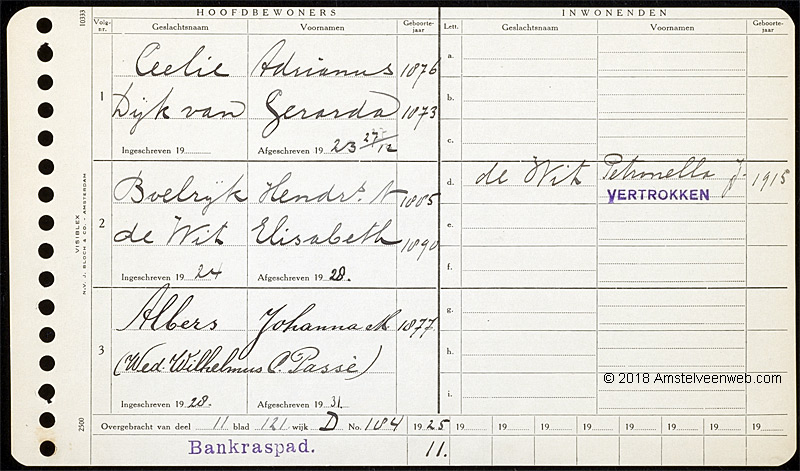 HOOFDBEWONERS
Volg-nr. Geslachtsnaam Voornamen Geboorte-jaar
1
Ceelie Adrianus 1876
Dijk van Gerarda 1873
Ingeschreven 19 Afgeschreven 19 23 27/12
2
Boelrijk Hendrs. A 1885
de Wit Elisabeth 1890
Ingeschreven 19 24 Afgeschreven 19 28.
3
Albers Johanna M. 1877
(Wed. Wilhelmus C. Passé)
Ingeschreven 19 28. Afgeschreven 19 31.
INWONENDEN
Lett. Geslachtsnaam Voornamen Geboorte-jaar
a.
b.
c.
d. de Wit Petronella J. 1915
VERTROKKEN
e.
f.
g.
h.
i.
Overgebracht van deel 11 blad 121 wijk D No. 184 19 25 19 19 19 19 19 19 19 19
Bankraspad. 11.
10333
VISIBLEX
N.V. J. BLOCH & CO. - AMSTERDAM
2500
© 2018 Amstelveenweb.com